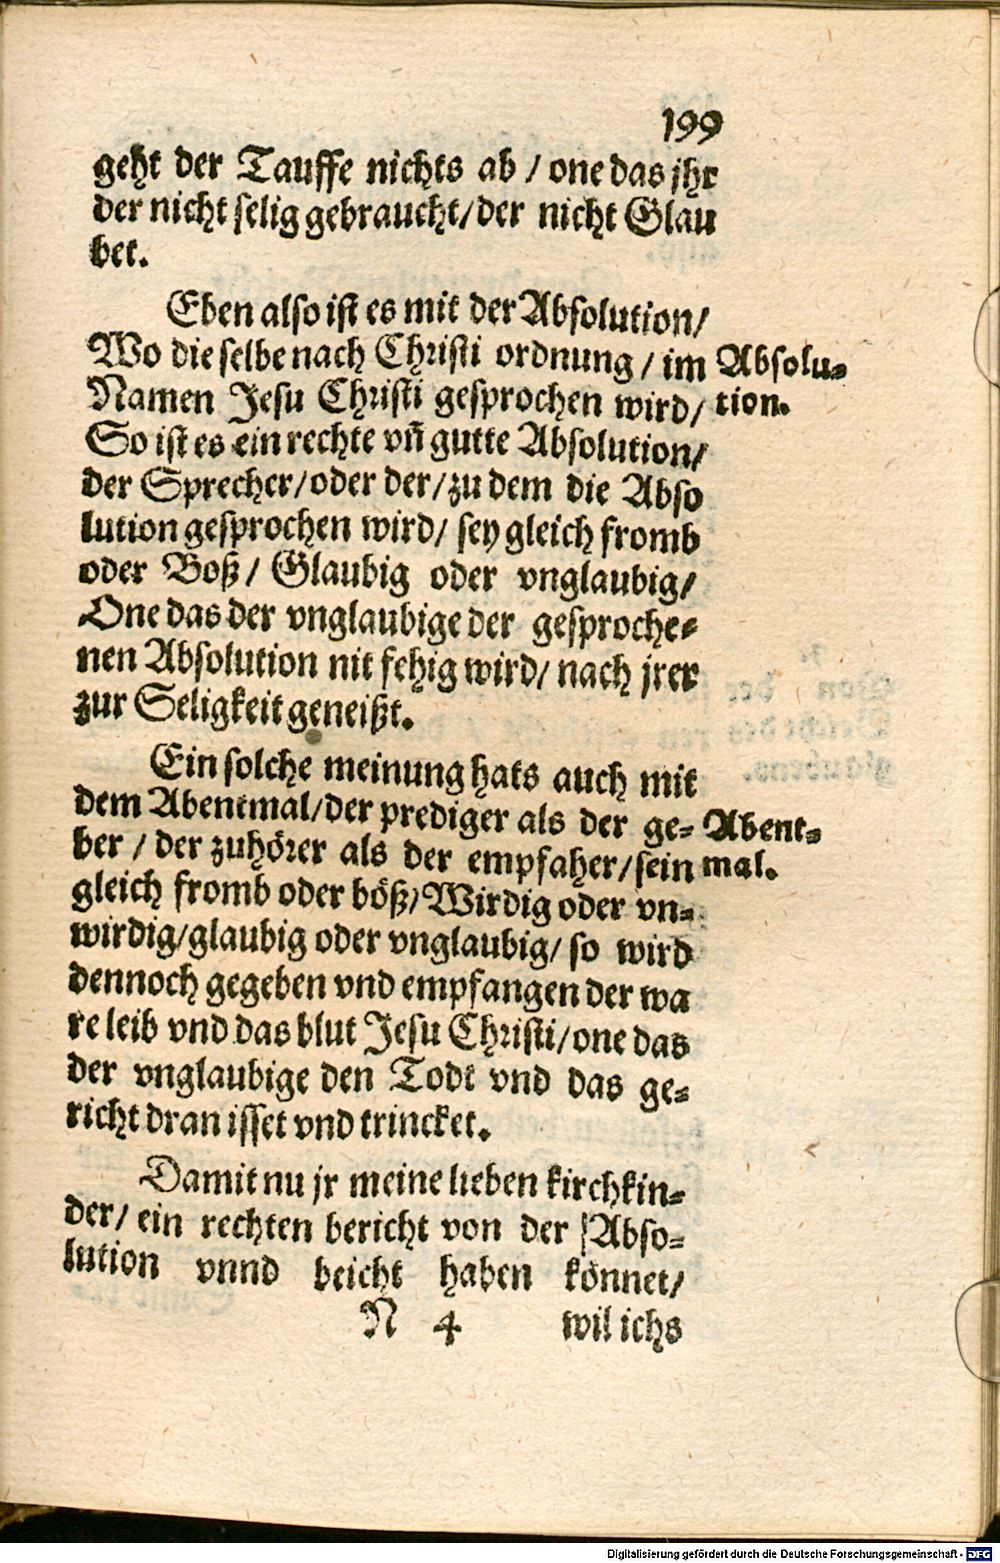 199
geht der Tauffe nichts ab / one das jhr
der nicht selig gebraucht/ der nicht Glau
bet.
Eben also ist es mit der Absolution/
Wo die selbe nach Christi ordnung / im
Absolu-
Namen Jesu Christi gesprochen wird/
tion.
So ist es ein rechte vñ gutte Absolution/
der Sprecher/ oder der/ zu dem die Abso
lution gesprochen wird/ sey gleich fromb
oder Boß/ Glaubig oder vnglaubig/
One das der vnglaubige der gesproche-
nen Absolution nit fehig wird/ nach jrer
zur Seligkeit geneißt.
Ein solche meinung hats auch mit
dem Abentmal/ der prediger als der ge-
Abent-
ber / der zuhörer als der empfaher/ sein
mal.
gleich fromb oder böß/ Wirdig oder vn-
wirdig/ glaubig oder vnglaubig/ so wird
dennoch gegeben vnd empfangen der wa
re leib vnd das blut Jesu Christi/ one das
der vnglaubige den Todt vnd das ge-
richt dran isset vnd trincket.
Damit nu jr meine lieben kirchkin-
der/ ein rechten bericht von der Abso-
lution vnnd beicht haben könnet/
N 4 wil ichs
Digitalisierung gefördert durch die Deutsche Forschungsgemeinschaft - DFG